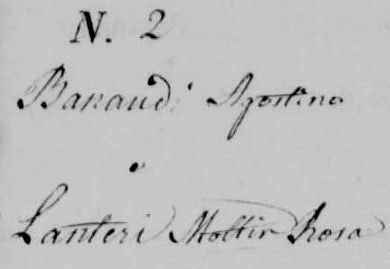 N. 2
Banaudi Agostino
e
Lanteri Mottin Rosa